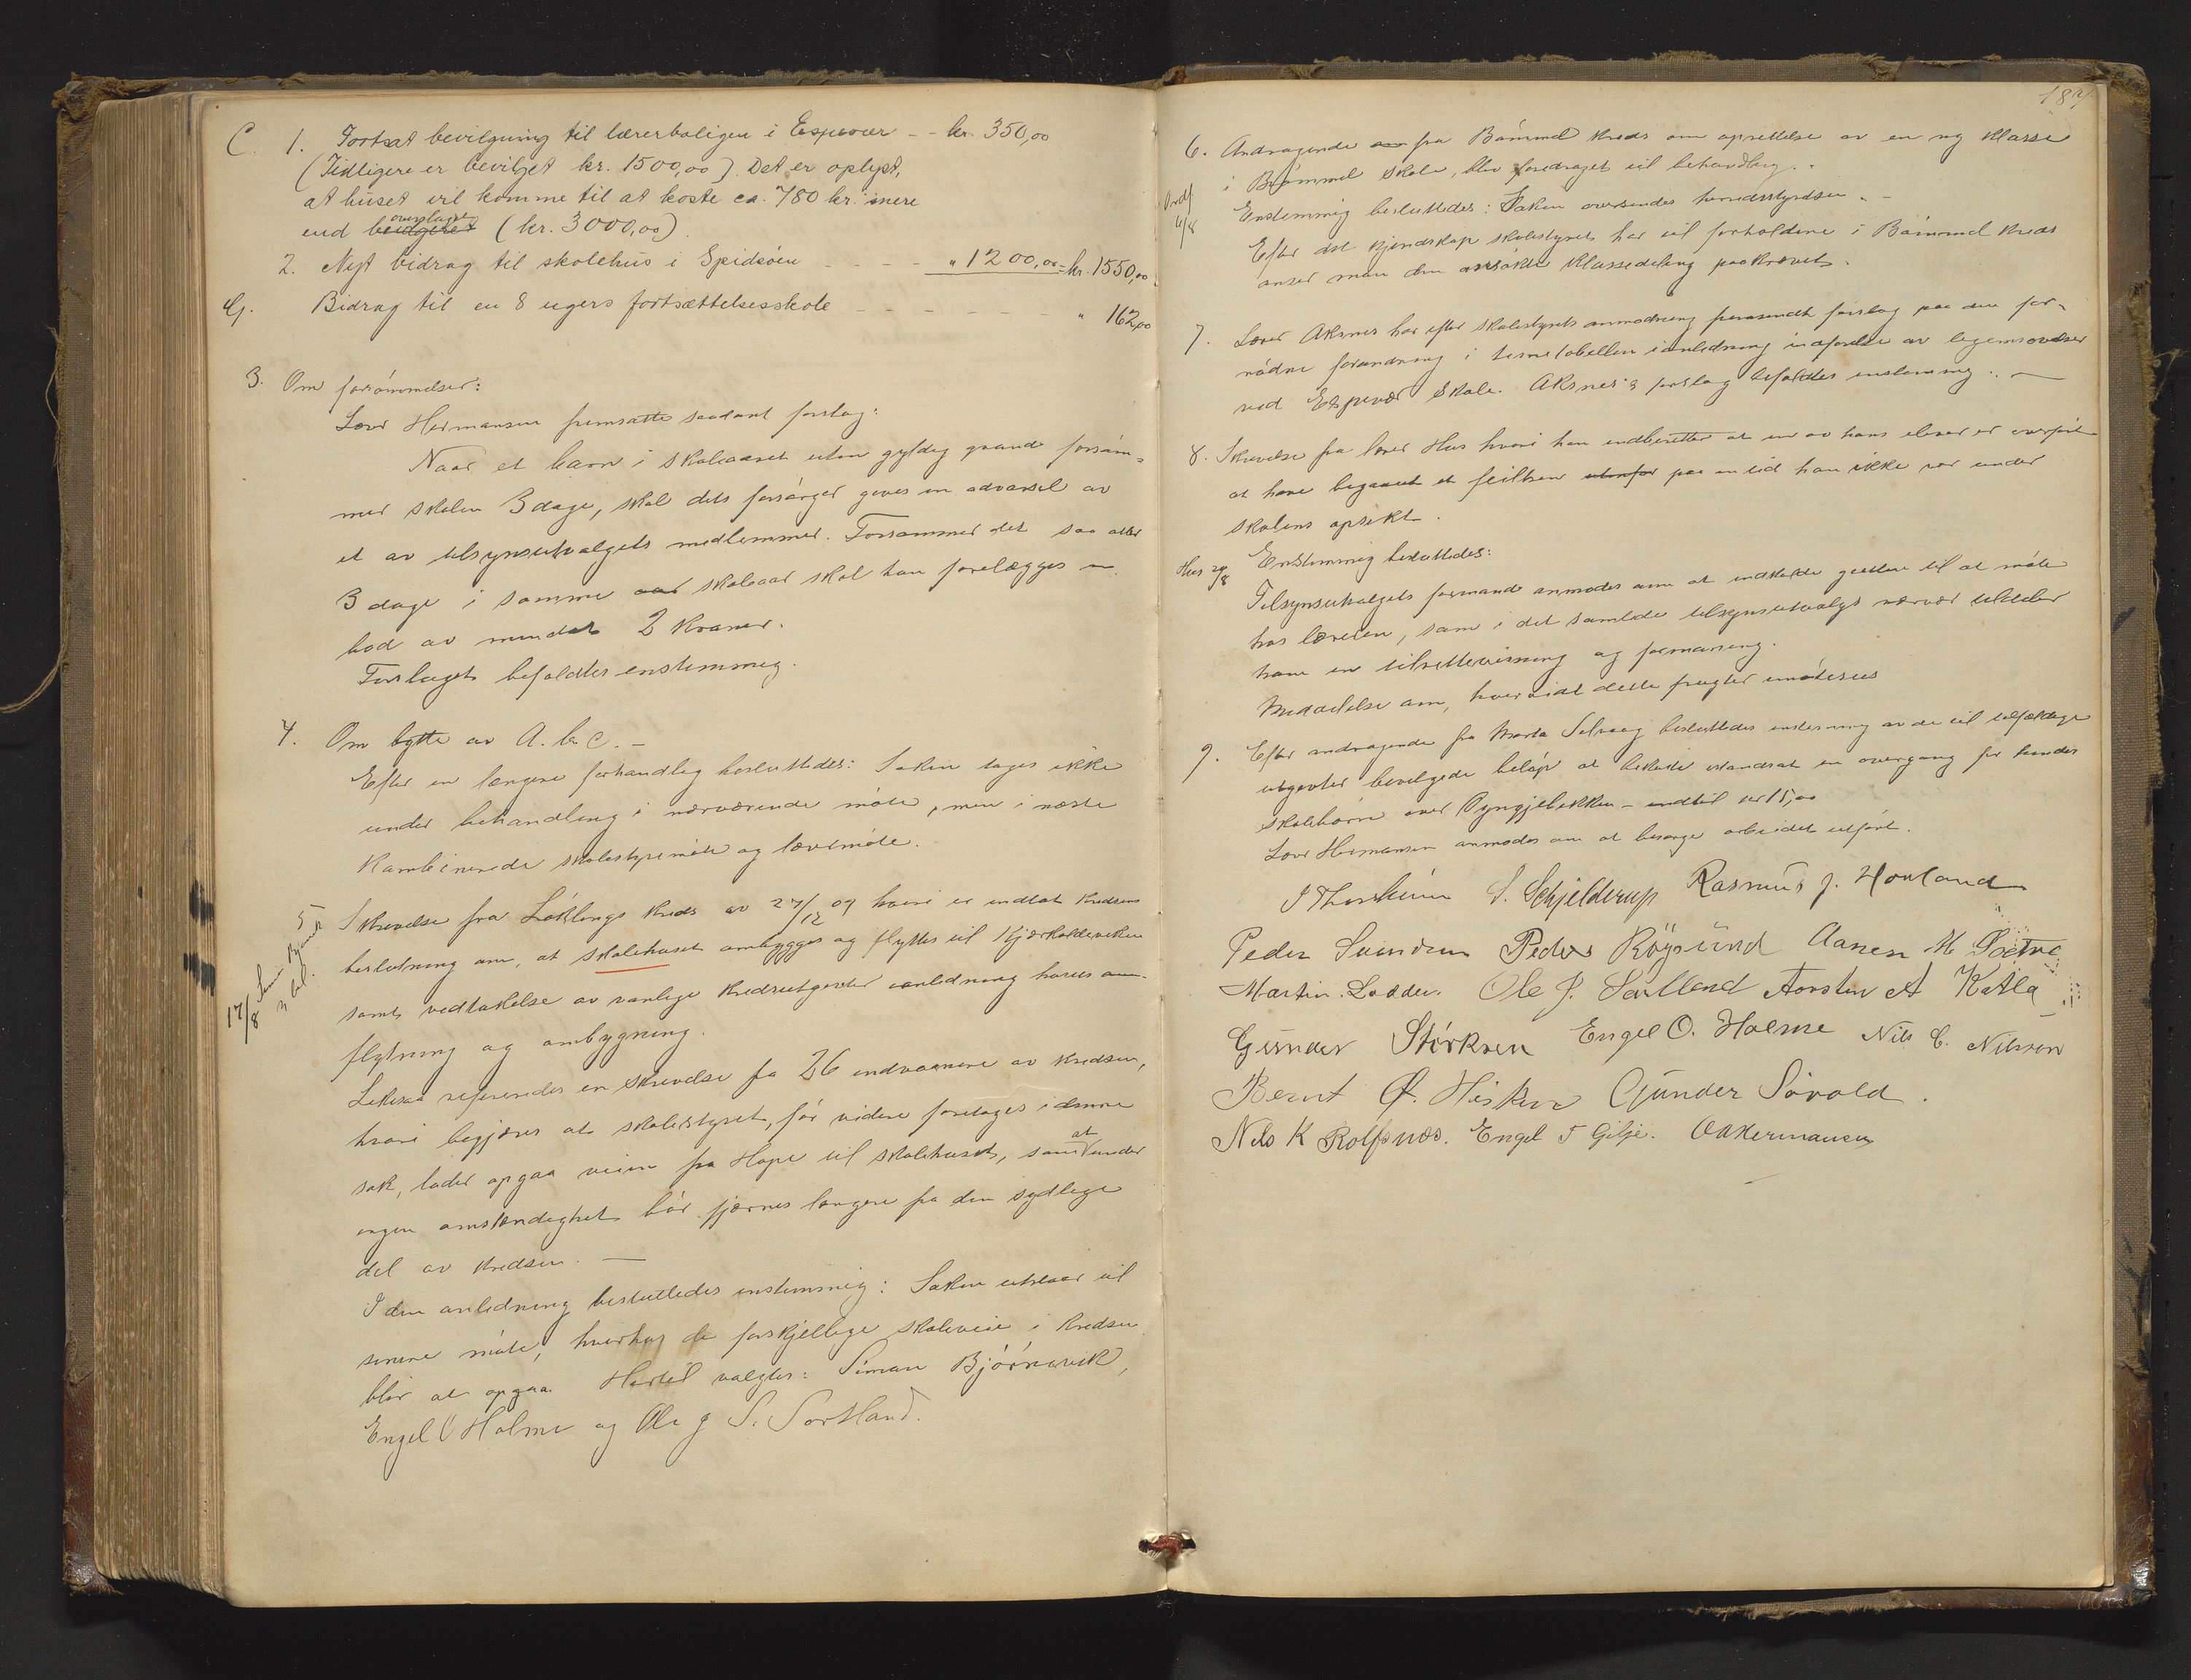 C. 1. Fortsat bevilgning til lærerboligen i Espevær - - kr. 350,00
(Tidligere er bevilget kr. 1500,00). Det er oplyst,
at huset vil komme til at koste ca. 780 kr. mere
overslaget
end (kr. 3000,00)
2. Nyt bidrag til skolehus i Spidsöen - - - - " 1200,00 = kr. 1550,00
G. Bidrag til en 8 ugers fortsættelsesskole - - - - - - " 162,00
3. Om forsömmelser:
Lærer Hermansen fremsatte saadant forslag:
Naar et barn i skoleaaret uten gyldig grund forsöm-
mer skolen 3 dage, skal dets forsörger gives en advarsel av
et av tilsynsutvalgets medlemmer. Forsömmer det saa atter
3 dage i samme aar skoleaar skal han forelægges en
bod av mindst 2 kroner.
Forslaget befaldtes enstemmig.
4. Om bytte av A.b.c. -
Efter en længere forhandling besluttedes: Saken tages ikke
under behandling i nærværende möte, men i næste
kombinerede skolestyremöte og lærermöte.
5 Skrivelse fra Löklings kreds av 27/12 09 hvori er indtat kredsens
beslutning om, at skolehuset ombygges og flyttes til Kjærkoldeviken
samt vedtakelse av vanlige kredsutgivter i anledning husets om-
flytning og ombygning.
17/8
Likesaa refereredes en skrivelse fra 26 indvaanere av kredsen,
hvori begjæres at skolestyret, för videre foretages i denne
sak, lader opgaa veien fra Hope til skolehuset, samt at under
ingen omstændighet bör fjernes længere fra den sydlige
del av kredsen. —
I den anledning besluttedes enstemmig: Saken utstaar til
senere möte, hvorhos de forskjellige skoleveie i kredsen
blir at opgaa. Hertil valgtes: Simon Björnevik,
Engel O Holme og Ole J S. Sortland.
187
6. Andragende fra Bömmel kreds om oprettelse av en ny klasse
i Bömmel skole, blev foredraget til behandling.
Ordf 6/8
Enstemmig besluttedes: Saken oversendes herredsstyrelsen. -
Efter det kjendskap skolestyret har til forholdene i Bömmel kreds
anser man den ansökte klassedeling paakrævet.
7. Lærer Aksnes har efter skolestyrets anmodning fremsendt forslag paa den for-
nödne forandring i timetabellen i anledning indförelse av legemsövelser
ved Espevær skole. Aksnes's forslag bifaldtes enstemmig. —
8. Skrivelse fra lærer Hus hvori han indberetter at en av hans elever er overfört
at have begaaet et feiltrin utenfor paa en tid han ikke var under
skolens opsikt.
Hus 29/8
Enstemmig besluttedes:
Tilsynsutvalgets formand anmodes om at indkalde gutten til at möte
hos læreren, som i det samlede tilsynsutvalgs nærvær tildeler
ham en tilrettevisning og formaning.
Meddelelse om, hvorvidt dette frugter imötesees
9. Efter andragende fra Marta Selvaag besluttedes enstemmig av de til tilfældige
utgivter bevilgede belöp at bekoste istandsat en overgang for hendes
skolebörn over - indtil kr 15,00
Lærer Hermansen anmodes om at besørge arbeidet utfört.
I Thorsheim S. Schjelderup Rasmus J. Hovland
Peder Peder Röysund Aanen M Sætre
Martin Lodden. Ole J. Sortland Torsten A Katla
Gunder Störksen Engel O. Holme Nils C. Nilsson
Bernt Ø. Hisken Gunder Sörvold.
Nils K Rolfsnæs. Engel T Gilje. O Akermansen